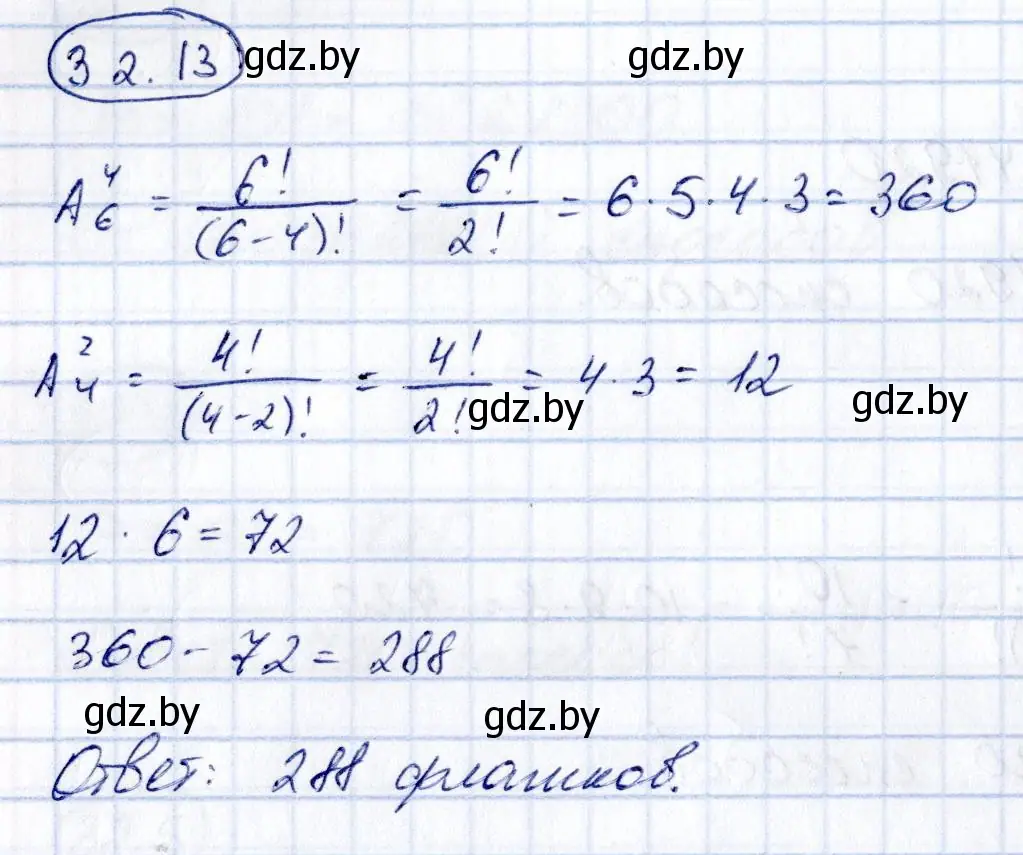 32.13 gdz.by gdz.by
A₆⁴ = 6!/(6-4)! = 6!/2! = 6·5·4·3 = 360
A₄² = 4!/(4-2)! = 4!/2! = 4·3 = 12
gdz.by gdz.by
12 · 6 = 72
360 - 72 = 288
gdz.by gdz.by
Ответ: 288 флашков.